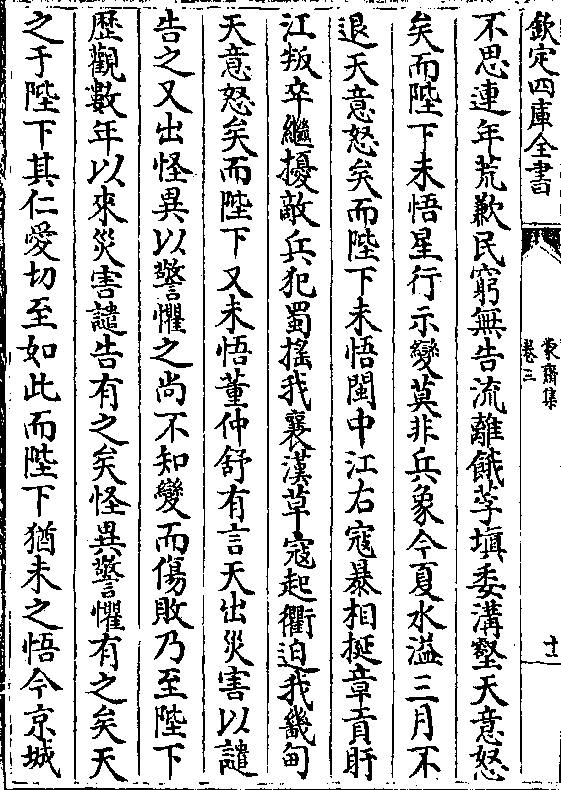 欽定四庫全書
蒙齋集
卷三
十一
不思連年荒歉民窮無告流離餓莩塡委溝壑天意怒
矣而陛下未悟星行示變莫非兵象今夏水溢三月不
退天意怒矣而陛下未悟閩中江右寇暴相挻章貢盱
江叛卒繼擾敵兵犯蜀搖我襄漢草寇起衢迫我畿甸
天意怒矣而陛下又未悟董仲舒有言天出災害以譴
告之又出怪異以警懼之尚不知變而傷敗乃至陛下
歴觀數年以來災害譴告有之矣怪異警懼有之矣天
之于陛下其仁愛切至如此而陛下猶未之悟今京城